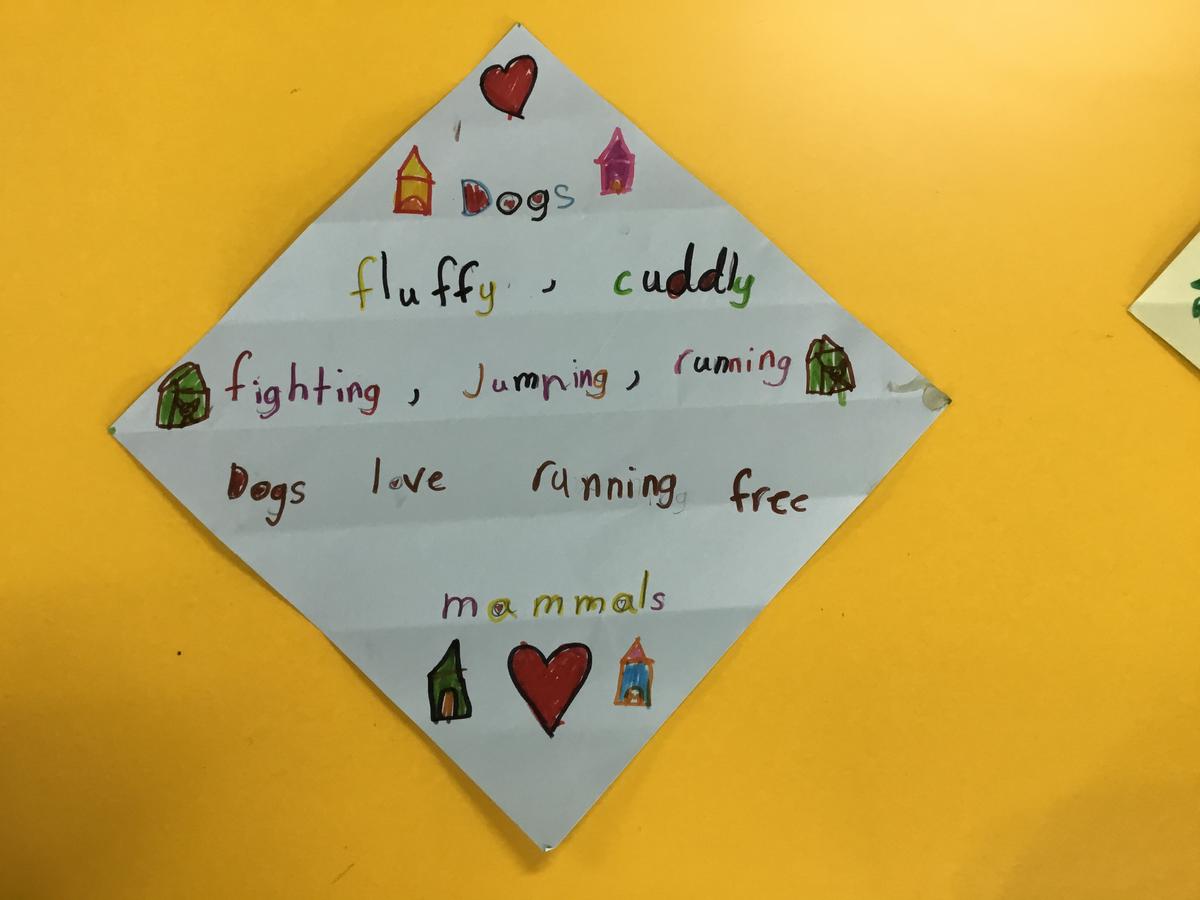 Dogs
fluffy, cuddly
fighting, Jumping, running
Dogs love running free
mammals